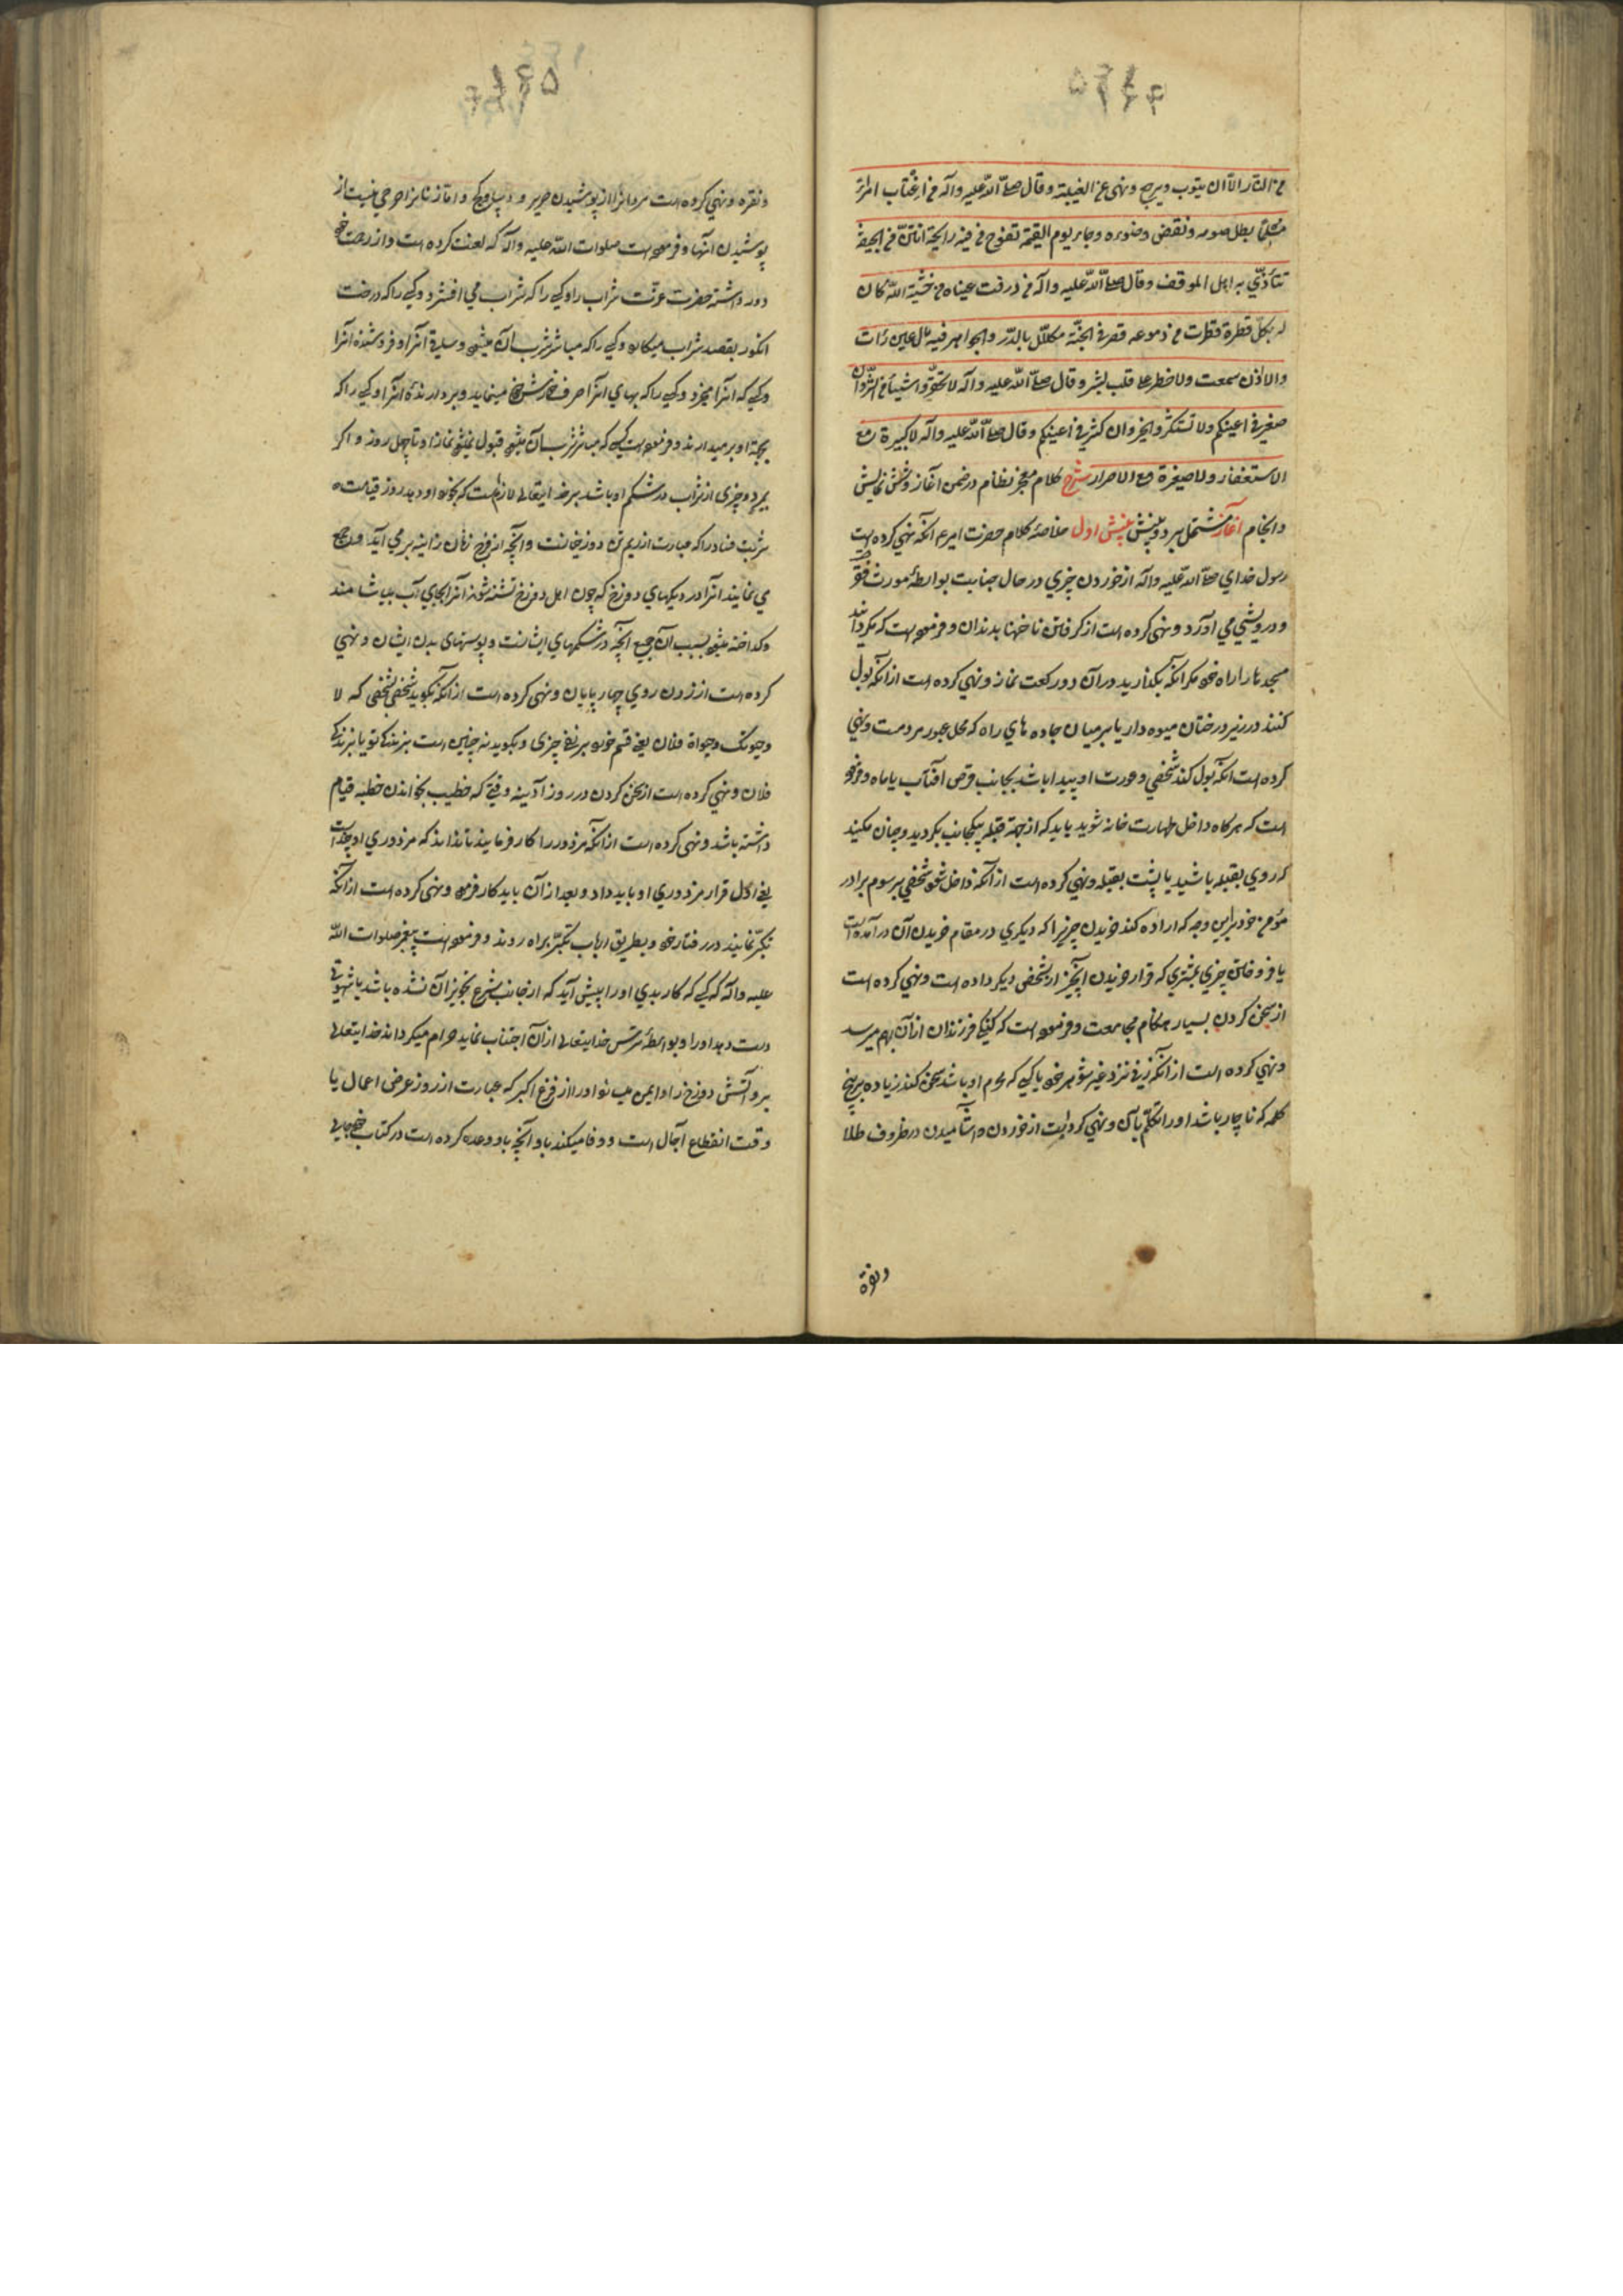 من النار الا ان يتوب ويرجع ونهى عن الغيبة وقال صلّى اللّه عليه وآله من اغتاب امرأ
مسلماً بطل صومه ونقض وضوءه وجاء يوم القيمة تفوح من فيه رايحة انتن من الجيفة
تتأذّي به اهل الموقف وقال صلّى اللّه عليه وآله من ذرفت عيناه من خشية اللّه كان
له بكلّ قطرة قطرت من دموعه قصر في الجنّة مكلّل بالدّر والجواهر فيه مال عين رأت
ولا اذن سمعت ولا خطر على قلب بشر وقال صلّى اللّه عليه وآله لا تحقّروا شيئاً من الشّر وان
صغير في اعينكم ولا تستكثروا الخير وان كثر في اعينكم وقال صلّى اللّه عليه وآله لا كبيرة مع
الاستغفار ولا صغيرة مع الاصرار شرح كلام معجز نظام در ضمن آغاز وشش نمايش
وانجام آغاز مشتمل بر دو بينش بينش اول خلاصهٔ كلام حضرت امير ع انكه نهي كرده است
رسول خداي صلّى اللّه عليه وآله از خوردن چيزي در حال جنابت بواسطهٔ مورث فقر
ودرويشي مي آورد ونهي كرده است از گرفتن ناخنها بدندان وفرموده است كه مگردانيد
مسجدها را راه خود مگر انكه بگذاريد در آن دو ركعت نماز ونهي كرده است از انكه بول
كنند در زير درختان ميوه دار يا بر ميان جاده هاي راه كه محل عبور مردمست ونهي
كرده است انكه بول كند شخصي وعورت او پيدا باشد بجانب قرص آفتاب يا ماه وفرموده
است كه هرگاه داخل طهارت خانه شويد بايد كه از جهة قبله بيكجانب بگرديد وچنان مكنيد
كه روي بقبله باشيد يا پشت بقبله ونهي كرده است از آنكه داخل شود شخصي بر سوم برادر
مؤمن خود براين وجه كه اراده كند خريدن چيزيرا كه ديگري در مقام خريدن آن درآمده است
يا فروختن چيزي بمشتري كه قرار خريدن آنچيز از شخصي ديگر داده است ونهي كرده است
از سخن كردن بسيار هنگام مجامعت وفرموده است كه گنگي فرزندان از آن بهم ميرسد
ونهي كرده است از آنكه زني نزد غير شوهر خود يا كسي كه محرم او باشد سخن كند زياده بر پنج
كلمه كه ناچار باشد او را تكلّم بآن ونهي كرده است از خوردن و آشاميدن در ظروف طلا
ونقره
ونقره ونهي كرده است مردانرا از پوشيدن حرير و ديبا و قز وامّا زنانرا حرجي نيست از
پوشيدن آنها وفرموده است صلوات اللّه عليه وآله كه لعنت كرده است واز رحمت خود
دور داشته حضرت عزّت شراب را وكسي را كه شراب مي افشرد وكسي را كه درخت
انگور بقصد شراب ميكارد وكسي را كه مباشر شرب آن ميشود وساقي آنرا وفروشنده آنرا
وكسي كه آنرا ميخرد وكسي را كه بهاي آنرا صرف خورش خود مينمايد وبردارندهٔ آنرا وكسي را كه
بجهة او برميدارند وفرموده است كسي كه مباشر شرب آن ميشود قبول نميشود نماز او تا چهل روز واگر
بميرد وچيزي از شراب در شكم او باشد بر خدايتعالي لازم است كه بخورد او دهد روز قيامت
شربت فساد را كه عبارت از ريم تن دوزخيانست وآنچه از فرج زنان زانيه بر مي آيد وجمع
مي نمايند آنرا در ديگهاي دوزخ كه چون اهل دوزخ تشنه شوند آنرا بجاي آب بياشامند
وگداخته ميشود بسبب آن جميع آنچه در شكمهاي ايشانست وپوستهاي بدن ايشان ونهي
كرده است از زدن روي چهارپايان ونهي كرده است از آنكه بگويد شخصي بشخصي كه لا
وحيوتك وحيوة فلان يعني قسم خورد بر نفي چيزي وبگويد نه چنين است بزندگي تو يا بزندگي
فلان ونهي كرده است از سخن كردن در روز آدينه وقتي كه خطيب بخواندن خطبه قيام
داشته باشد ونهي كرده است از آنكه مزدور را كار فرمايند تا ندانند كه مزدوري او چند است
يعني اوّل قرار مزدوري او بايد داد وبعد از آن بايد كار فرمود ونهي كرده است از آنكه
تكبّر نمايند در رفتار خود وبطريق ارباب تكبّر براه روند وفرموده است پيغمبر صلوات اللّه
عليه وآله كه كسي كه كار بدي او را پيش آيد كه از جانب شرع تجويز آن نشده باشد يا شهوتي
دست دهد او را وبواسطهٔ ترس خدايتعالي از آن اجتناب نمايد حرام ميگرداند خدايتعالي
برو آتش دوزخ را وايمن ميسازد او را از فزع اكبر كه عبارت از روز عرض اعمال يا
وقت انقطاع آجال است ووفا ميكند باو آنچه باو وعده كرده است در كتاب خود جايي